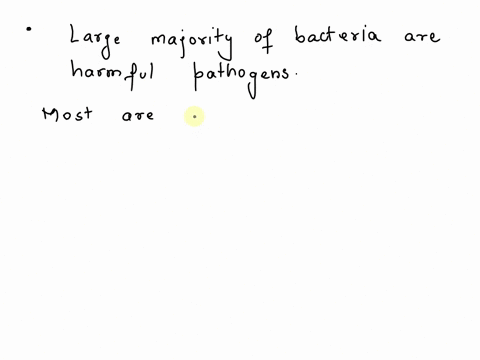 • Large majority of bacteria are
harmful pathogens.
Most are